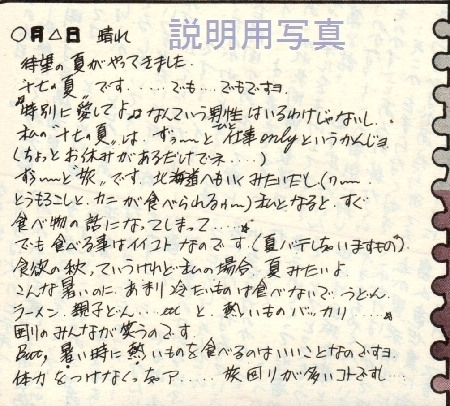 説明用写真
○月△日 晴れ
待望の夏がやってきました.
"十七の夏"です.....でも...でもですヨ.
"特別に愛してよ"なんていう男性はいるわけじゃないし..
私の"十七の夏"は、ずぅーっと仕事onlyというかんじヨ
(ちょっとお休みがあるだけでネ....)
ずぅーっと"旅"です. 北海道へもいくみたいだし.(
とうもろこしと、カニが食べられる)私となると、すぐ
食べ物の話になってしまって.....
でも食べる事はイイコトなのです.(夏バテしちゃいますもの).
食欲の秋っていうけれど私の場合、夏みたいよ.
こんな暑いのに、あまり冷たいものは食べないで、うどん.
ラーメン. 親子どん...etc と、熱いものバッカリ.....
回りのみんなが笑うのです.
But, 暑い時に熱いものを食べるのはいいことなのですヨ.
体力をつけなくっちゃア..... 旅回りが多いコトですし...